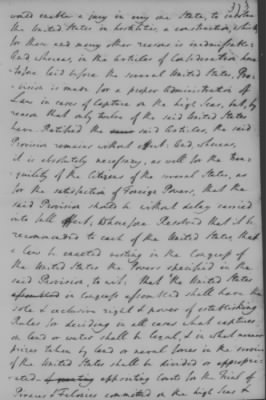 would enable a jury in any one State, to involve
the United States in hostilities, a construction, which
for these and many other reasons is inadmissible.
And, whereas, in the Articles of Confederation here-
tofore laid before the several United States, Pro-
vision is made for a proper administration of
Law in cases of Capture on the high Seas, but, by
reason that only twelve of the said United States
have Ratified the said Articles, the said
Provision remains without effect. And, whereas,
it is absolutely necessary, as well for the tran-
quility of the Citizens of the several States, as
for the satisfaction of Foreign Powers, that the
said Provision should be without delay carried
into full effect; Wherefore Resolved that it be
recommended to each of the United States, that
a law be enacted vesting in the Congress of
the United States the Powers specified in the
said Provision, to wit. That the United States
assembled in Congress assembled shall have the
sole & exclusive right & power of establishing
Rules for deciding in all cases what captures
on land or water shall be legal, & in what manner
prizes taken by land or naval forces in the service
of the United States shall be divided or appropri-
ated. appointing Courts for the Trial of
Piracies & Felonies committed on the high Seas &